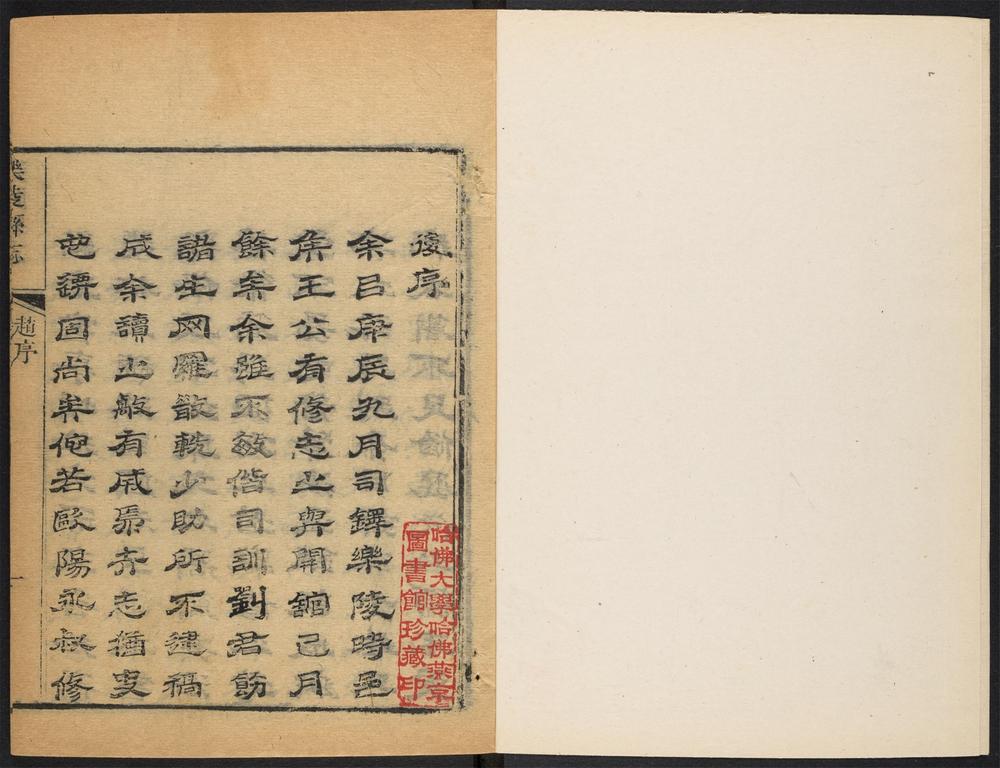 後序
余㠯庚辰九月司鐸樂陵時邑
矦王公有修志之舉開舘已月
餘矣余雖不敏偕司訓劉君飭
諸生网羅散軼少助所不逮稿
成余讀之敂有感焉夫志猶史
也譚固尚矣他若歐陽永叔修
樂陵縣志
趙序
一
哈佛大學哈佛燕京
圖書館珍藏印